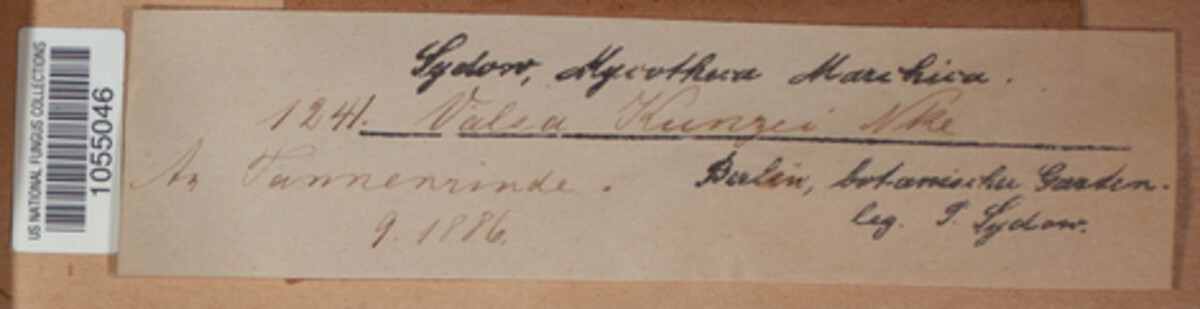 US NATIONAL FUNGUS COLLECTIONS
1055046
Sydow, Mycotheca Marchica.
1241. Valsa Kunzei Nke
An Tannenrinde. Berlin, botanischer Garten.
9. 1886. leg. P. Sydow.